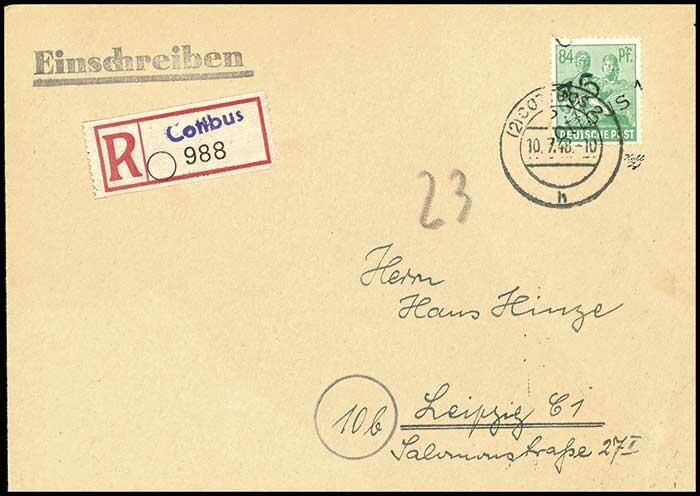 Einschreiben
84 Pf.
DEUTSCHE POST
10.7.48.-10
h
R Cottbus
988
23
Herrn
Hans Hinze
10b Leipzig C1
Salomonstraße 27 II